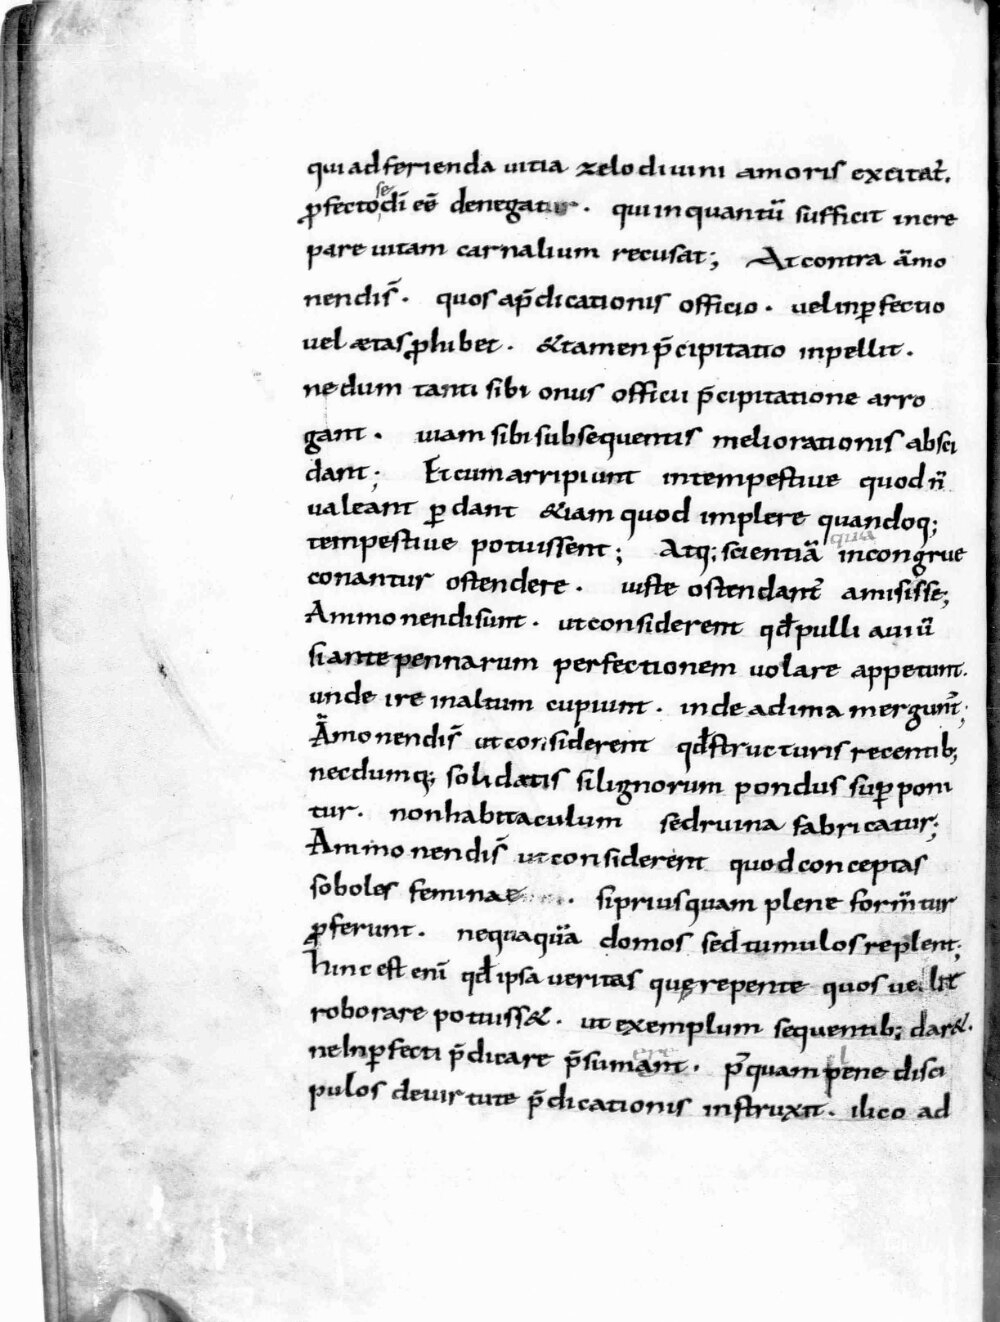 qui ad ferienda uitia zelo diuini amoris excitat̃.
ꝓfecto se dī eē denegatur. qui inquantū sufficit incre
pare uitam carnalium recusat; At contra āmo
nendis̄. quos ap̄dicationis officio. uel inꝑfectio
uel ætas ꝓhibet. & tamen p̄cipitatio inpellit.
ne dum tanti sibi onus officii p̄cipitatione arro
gant. uiam sibi subsequentis meliorationis absci
dant; Et cum arripiunt intempestiue quod n̄
ualeant ꝑdant &iam quod implere quandoq;
tempestiue potuissent; Atq; scientiā quia incongrue
conantur ostendere. iuste ostendant̃ amisisse;
Ammonendi sunt. ut considerent qđ pulli auiū
si ante pennarum perfectionem uolare appetunt.
unde ire in altum cupiunt. inde ad ima mergunt̃;
Āmonendis̄ ut considerent qđ structuris recentib;
necdumq; solidatis si lignorum pondus suꝑponi
tur. non habitaculum sed ruina fabricatur;
Ammonendis̄ ut considerent quod conceptas
soboles feminae. si priusquam plene form̄tur
ꝓferunt. nequaquā domos sed tumulos replent;
hinc est enī qđ ipsa ueritas quę repente quos uellit
roborare potuiss&. ut exemplum sequentib; dar&.
ne inꝑfecti p̄dicare p̄sumerent. p̄quam plene disci
pulos de uirtute p̄dicationis instruxit. ilico ad